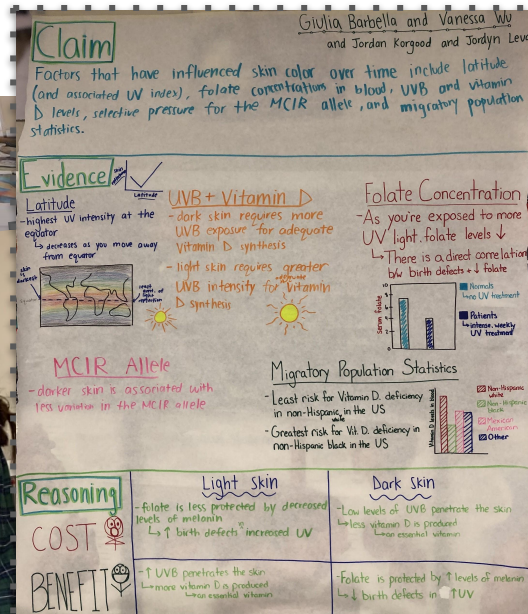 Giulia Barbella and Vanessa Wu
and Jordan Korgood and Jordyn
Claim
Factors that have influenced skin color over time include latitude
(and associated UV index), folate concentrations in blood, UVB and vitamin
D levels, selective pressure for the MC1R allele, and migratory population
statistics.
Evidence
Latitude
Latitude
-highest UV intensity at the
equator
↳ decreases as you move away
from equator
skin is darkest
UVB + Vitamin D
-dark skin requires more
UVB exposure for adequate
Vitamin D synthesis
-light skin requires greater
UVB intensity for adequate vitamin
D synthesis
Folate Concentration
-As you're exposed to more
UV light, folate levels ↓
↳ There is a direct correlation
b/w birth defects + ↓ folate
Serum folate
Normals
↳ no UV treatment
Patients
↳ intense, weekly
UV treatment
MC1R Allele
- darker skin is associated with
less variation in the MC1R allele
Migratory Population Statistics
- Least risk for Vitamin D. deficiency
in non-Hispanic white in the US
- Greatest risk for Vit. D. deficiency in
non-Hispanic black in the US
Vitamin D levels in blood
Non-Hispanic
white
Non-Hispanic
black
Mexican
American
Other
Reasoning
Light Skin
Dark Skin
COST
-folate is less protected by decreased
levels of melanin
↳ ↑ birth defects increased UV
-Low levels of UVB penetrate the skin
↳ less vitamin D is produced
↳ an essential vitamin
BENEFIT
-↑ UVB penetrates the skin
↳ more vitamin D is produced
↳ an essential vitamin
-Folate is protected by ↑ levels of melanin
↳ ↓ birth defects in ↑UV